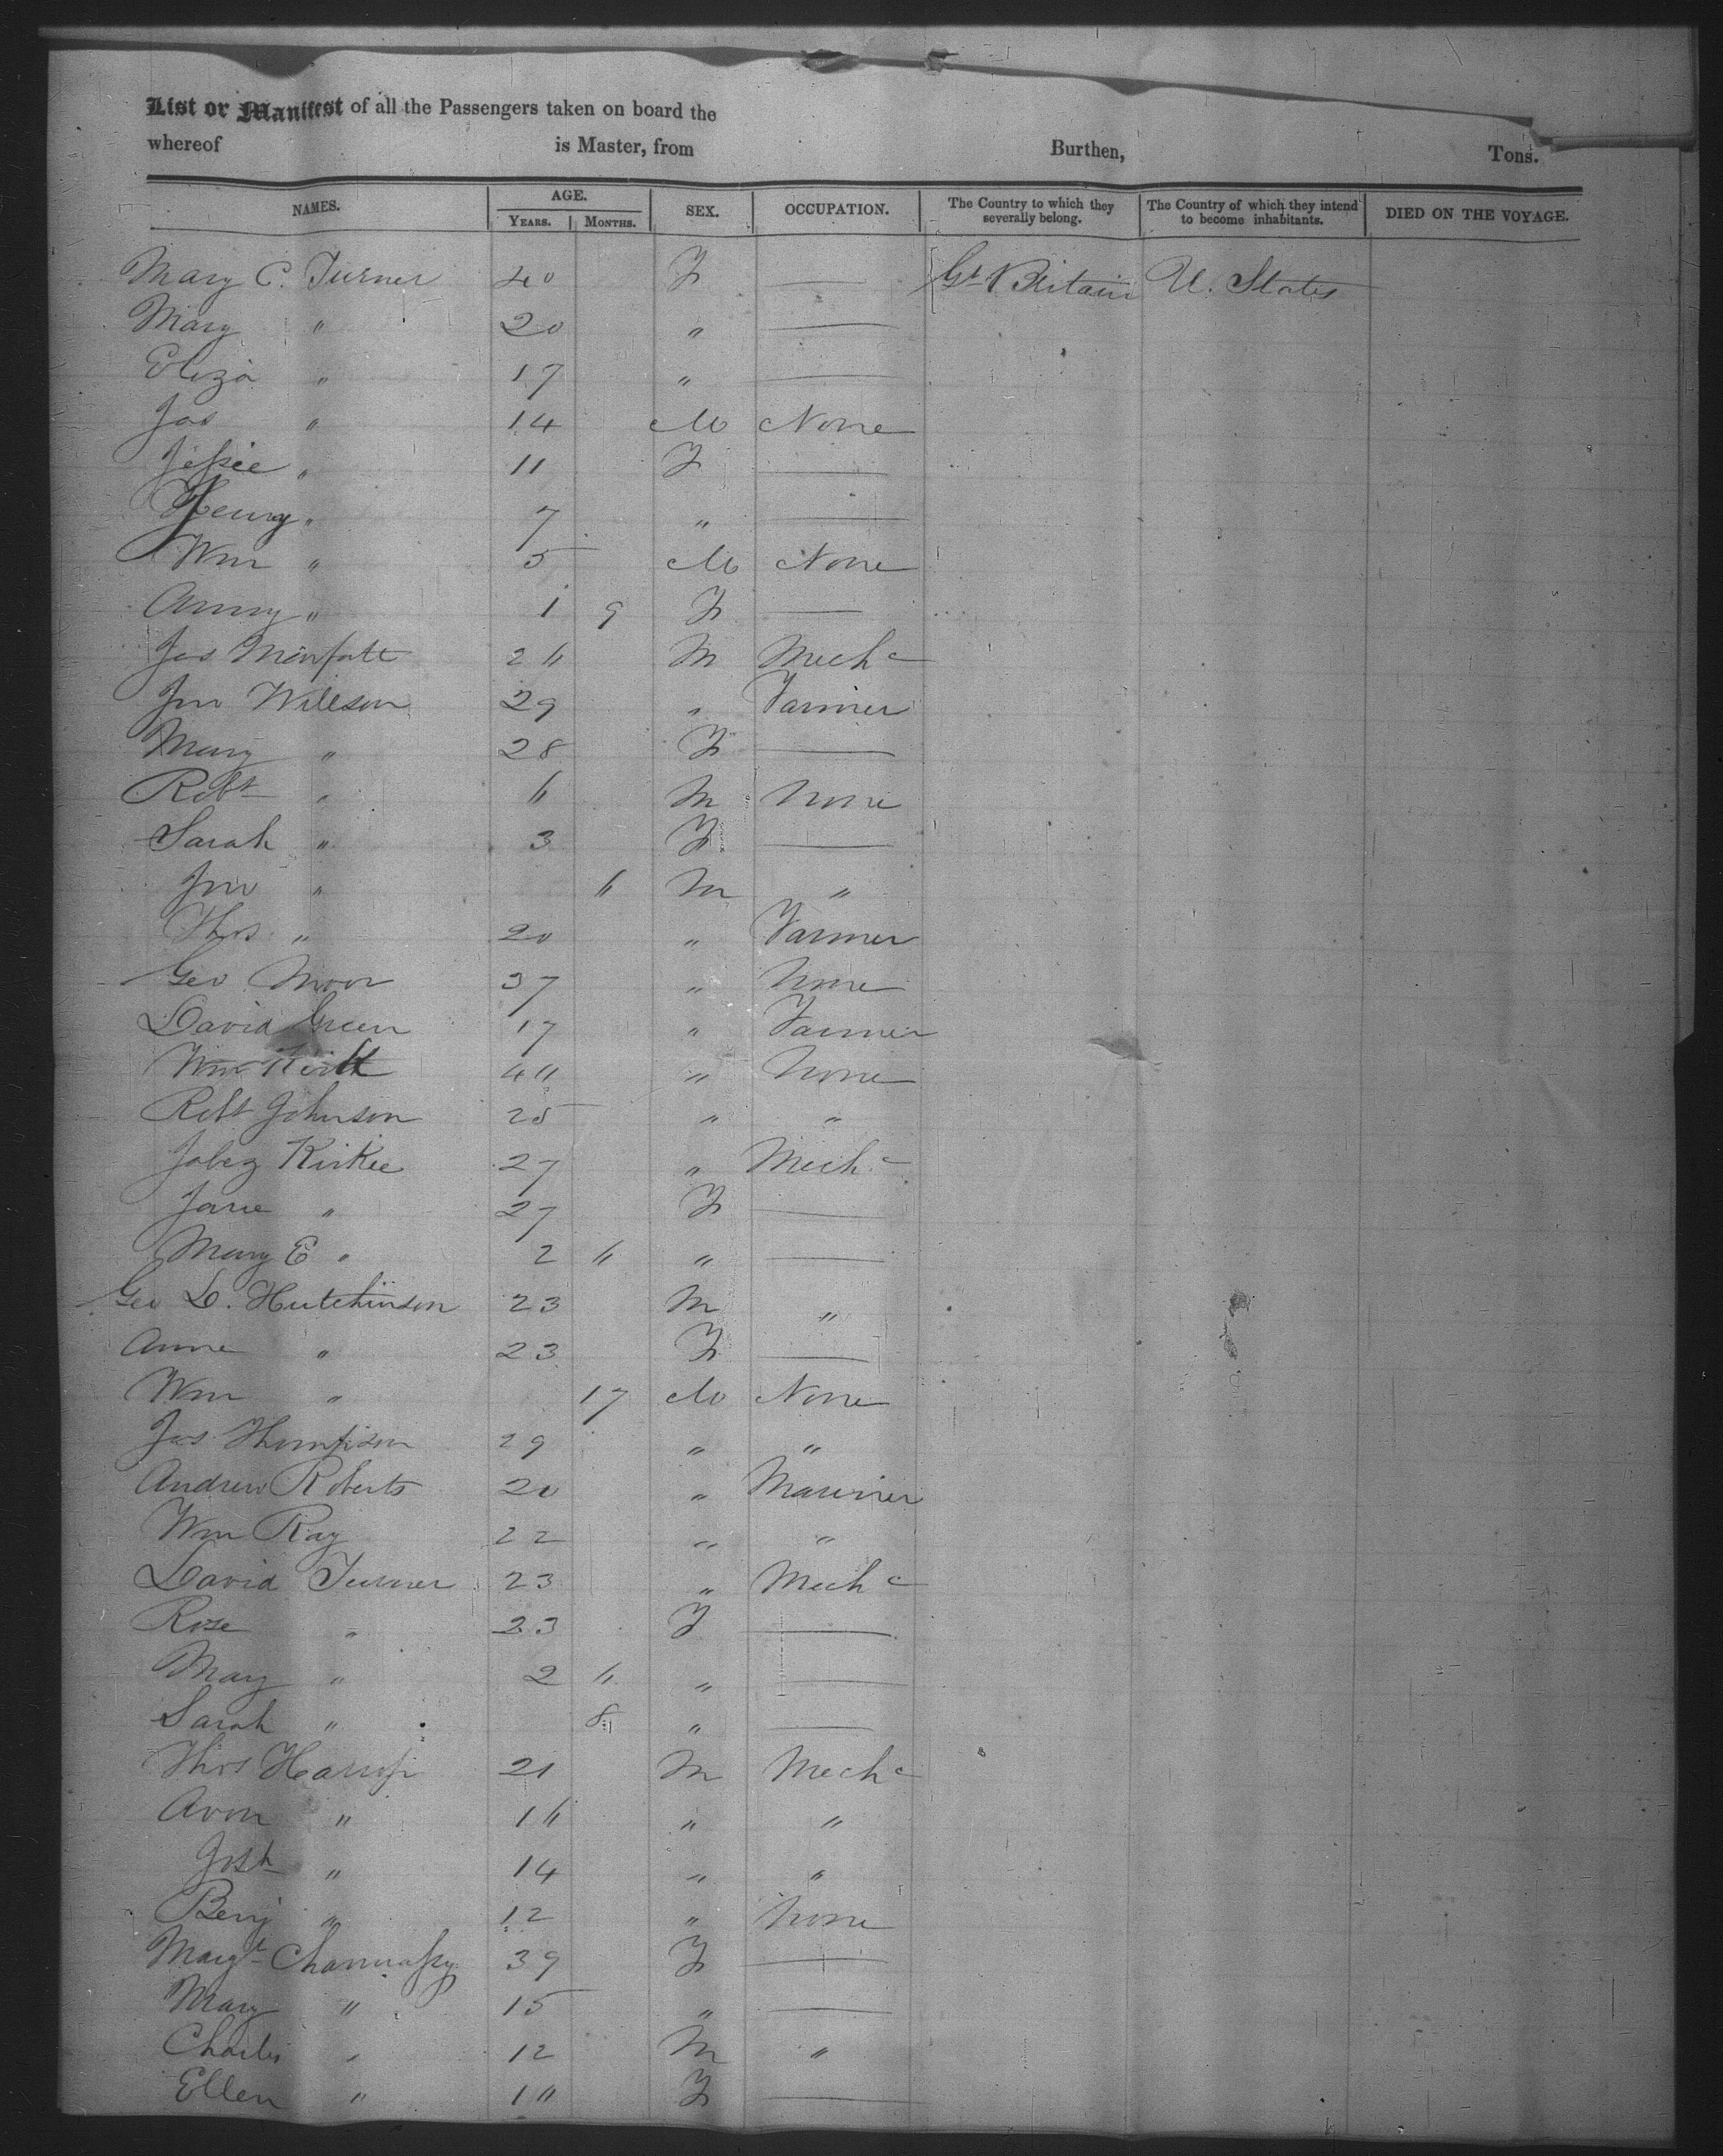 List or Manifest of all the Passengers taken on board the
whereof is Master, from Burthen, Tons.
NAMES. AGE. YEARS. MONTHS. SEX. OCCUPATION. The Country to which they severally belong. The Country of which they intend to become inhabitants. DIED ON THE VOYAGE.
Mary C. Turner 40 F — Gt Britain U. States
Mary " 20 " —
Eliza " 17 " —
Jas " 14 M None
Jessie " 11 F —
Henry " 7 " —
Wm " 5 M None
Anny " 1 9 F —
Jas M Mechc
Jno Willson 29 " Farmer
Mary " 28 F —
Robt " 6 M None
Sarah " 3 F —
Jno " 6 M "
Thos " 20 " Farmer
Geo Moor 37 " None
David Green 17 " Farmer
Wm " None
Robt Johnson 25 " "
Jabez Kirkie 27 " Mechc
Jane " 27 F —
Mary E " 2 6 " —
Geo D. Hutchinson 23 M "
Anne " 23 F —
Wm " 17 M None
Jas Thompson 29 " "
Andrew Roberts 20 " Mariner
Wm Ray 22 " "
David Turner 23 " Mechc
Rose " 23 F —
Mary " 2 6 " —
Sarah " 8 " —
Thos Harrop 21 M Mechc
" 16 " "
Josh " 14 " "
Benj " 12 " None
Margt 39 F —
Mary " 15 " —
Charles " 12 M "
Ellen " F —